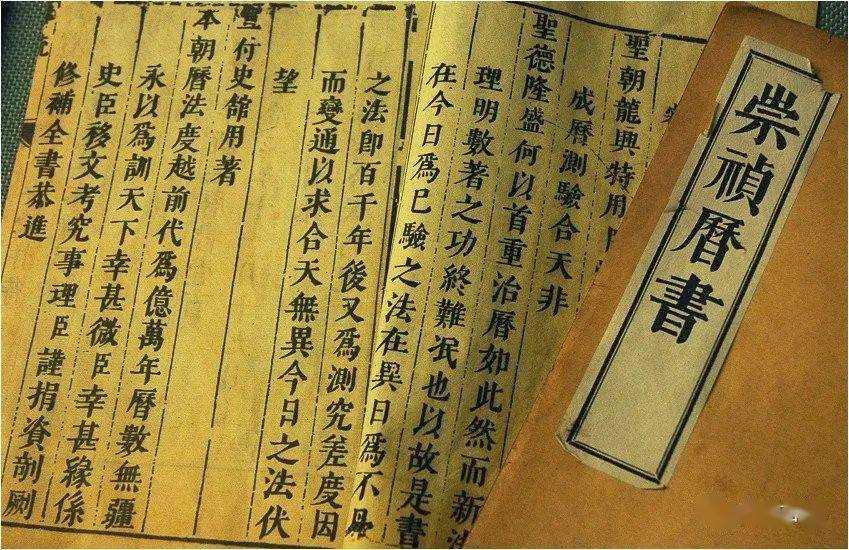 崇禎曆書
聖朝龍興特用
成曆測驗合天非
聖德隆盛何以首重治曆如此然而新法
理明數著之功終難泯也以故是書
在今日為已驗之法在異日為不
之法即百千年後又為測究差度因
而變通以求合天無異今日之法伏
望
宣付史館用著
本朝曆法度越前代為億萬年曆數無疆
永以為訓天下幸甚微臣幸甚緣係
史臣移文考究事理臣謹捐資剞劂
修補全書恭進